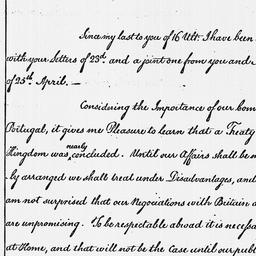 Since my last to you of 16 Ult. I have been
with your Letters of 23d. and a joint one from you and
of 25th April. —
Considering the Importance of our Com
Portugal, it gives me Pleasure to learn that a Treaty
Kingdom was nearly concluded. Until our Affairs shall be m
by arranged we shall treat under Disadvantages, and
am not surprised that our Negociations with Britain a
are unpromising. To be respectable abroad it is necess
at Home, and that will not be the Case until our publ